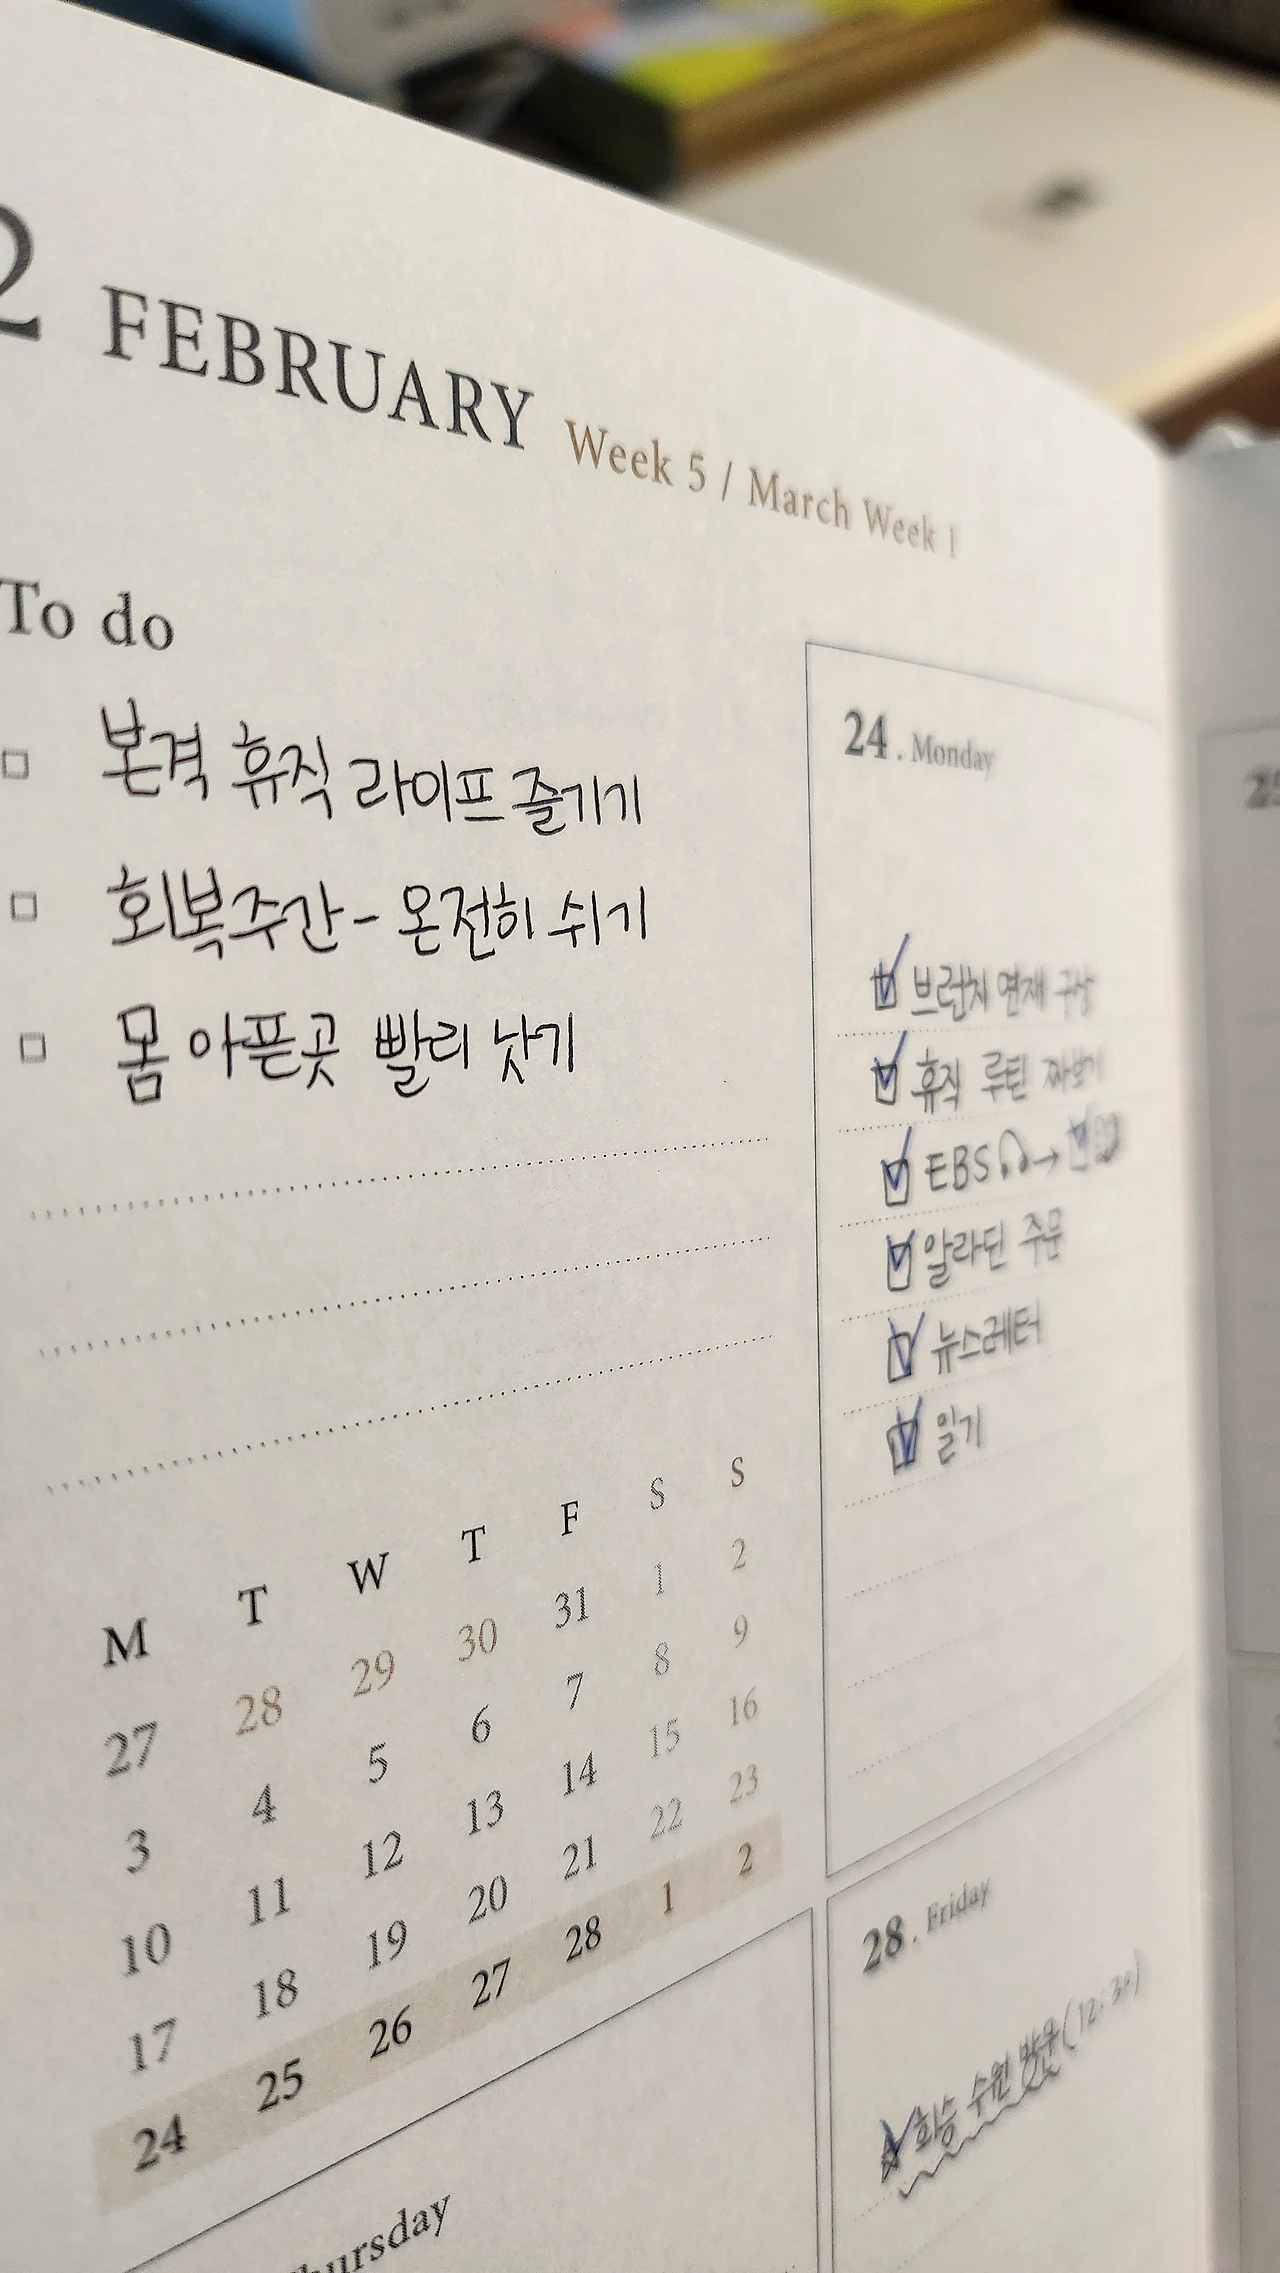 2 FEBRUARY Week 5 / March Week 1
To do
본격 휴직 라이프 즐기기
회복주간 - 온전히 쉬기
몸 아픈곳 빨리 낫기
M T W T F S S
27 28 29 30 31 1 2
3 4 5 6 7 8 9
10 11 12 13 14 15 16
17 18 19 20 21 22 23
24 25 26 27 28 1 2
24. Monday
브런치 연재 구상
휴직 루틴 짜보기
EBS →
알라딘 주문
뉴스레터
일기
28. Friday
수원 방문 (12:30)